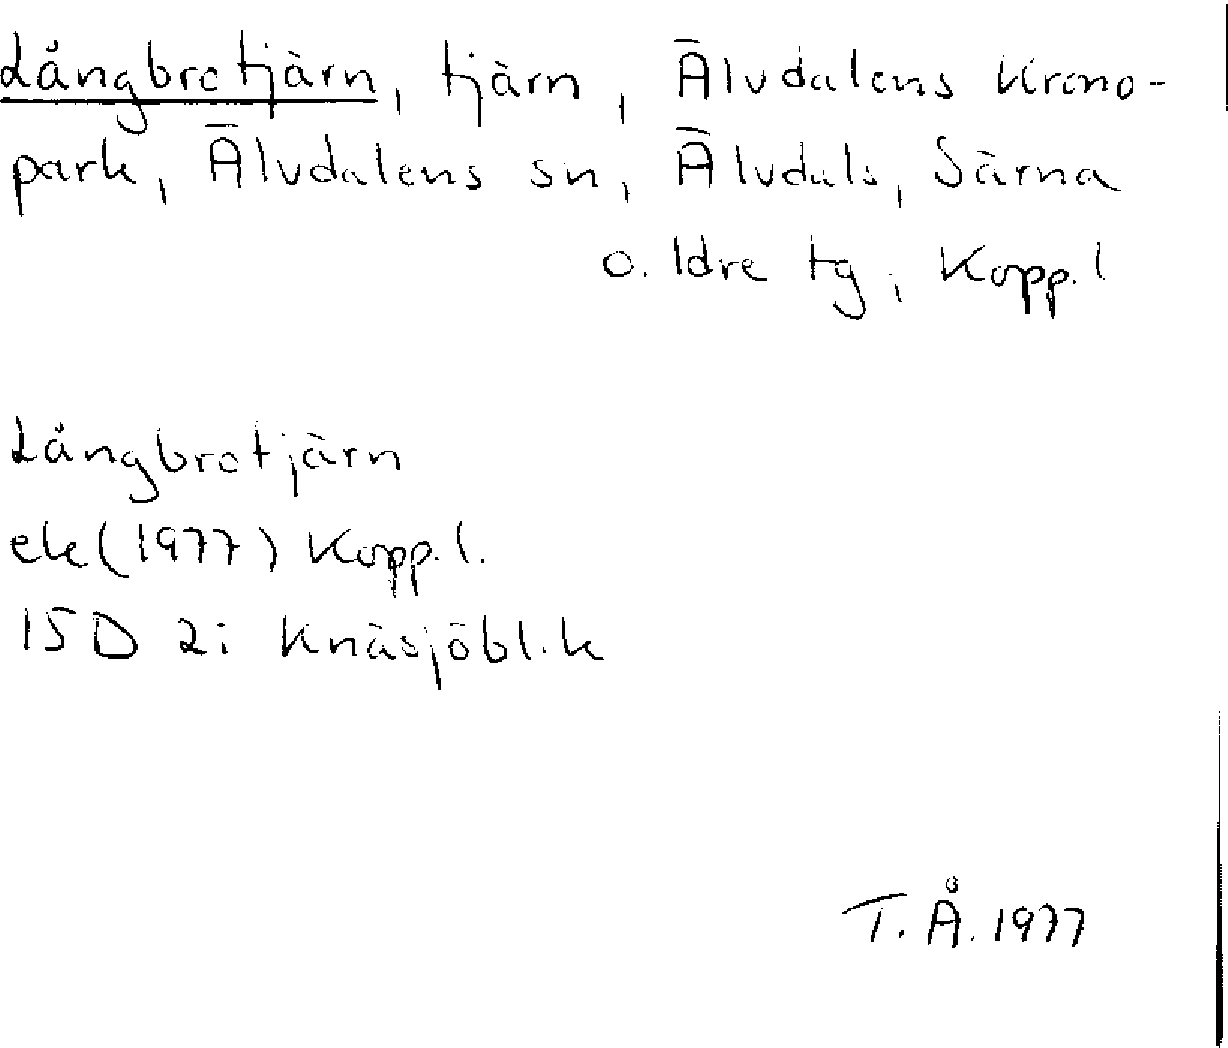 Långbrotjärn, tjärn, Älvdalens krono-
park, Älvdalens sn, Älvdals, Särna
o. Idre tg, Kopp. l
Långbrotjärn
ek (1977) Kopp. l.
15D 2i Knäsjöbl.k
T. Å. 1977